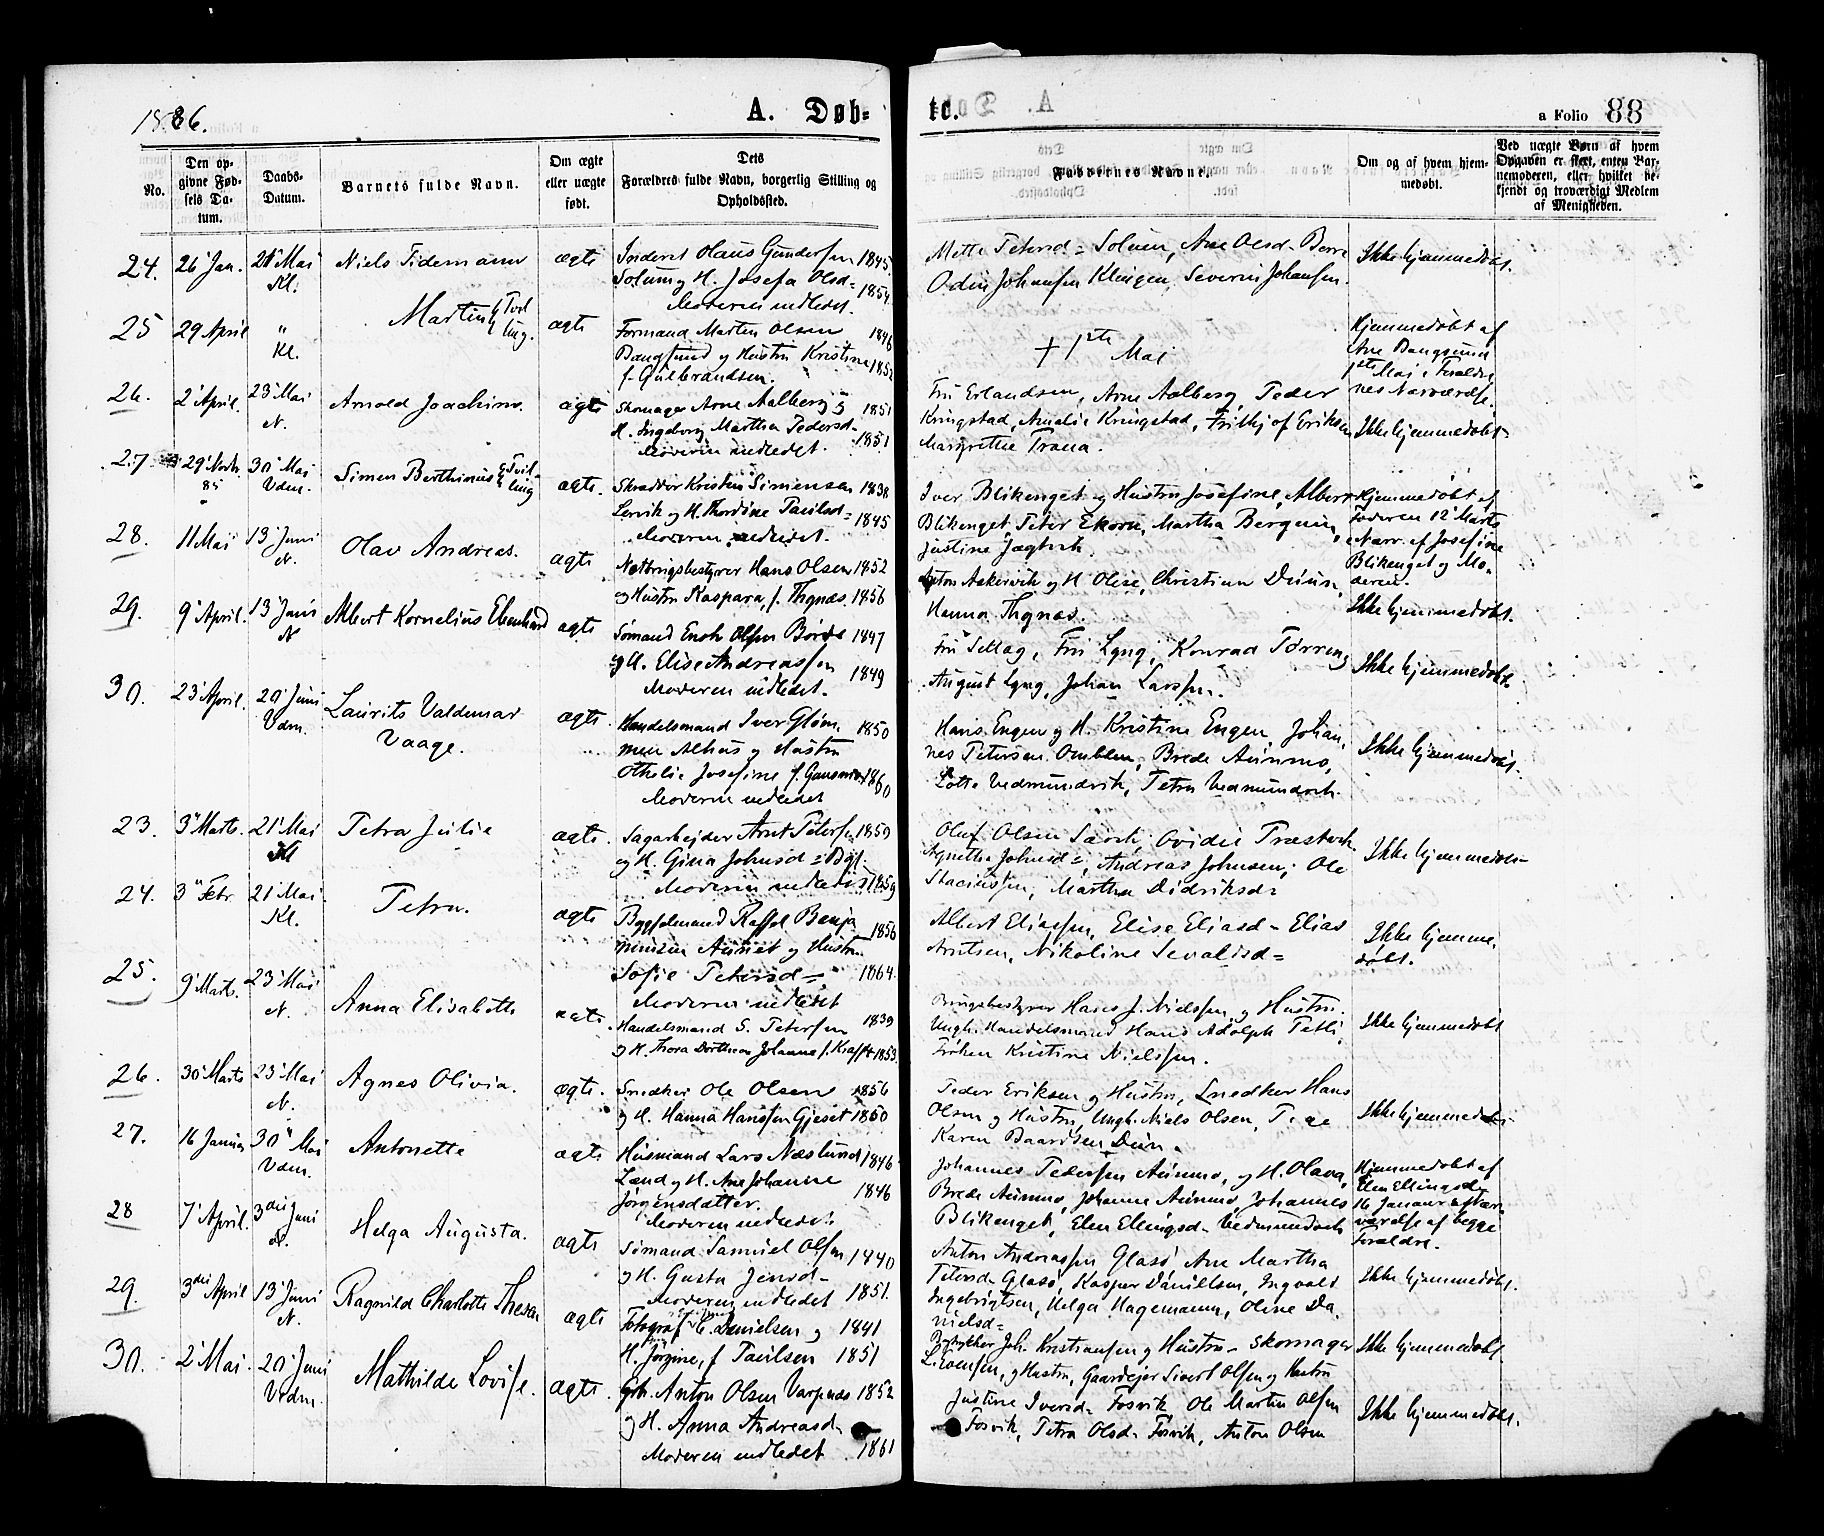 1886.
A. Døb=
te.
a Folio 88
No.
Den op-
givne Fød-
sels Da-
tum.
Daabs-
Datum.
Barnets fulde Navn.
Om ægte
eller uægte
født.
Dets
Forældres fulde Navn, borgerlig Stilling og
Opholdssted.
Faddernes Navne.
Om og af hvem hjem-
medøbt.
Ved uægte Børn af hvem
Opgaven er skeet, enten Bar-
nemoderen, eller hvilket be-
kjendt og troværdigt Medlem
af Menigheden.
24. 26' Jan. 21' Mai Kl. Niels Tidemann ægte
Inderst Olaus Gundersen 1845
Solum og H. Josefa Olsd= 1854
Moderen indledet.
Mette Petersd= Solum, Ane Olsd= Borre
Odin Johansen Klingen, Severin Johansen.
Ikke hjemmedøbt.
25 29 April " Kl. Martin ægte
Formand Martin Olsen 1846
Bangsund og Hustru Kristine 1852
f. Gulbrandsen.
+ 1ste Mai
Hjemmedøbt af
Ane Bangsund
1ste Mai i Foræld
nes Nærværelse.
26. 2' April. 23' Mai N. Arnold Joachim. ægte
Skomager Arne Aalberg og 1851
H. Ingeborg Martha Pedersd= 1851
Moderen indledet.
Fru Erlandsen, Arne Aalberg, Peder
Kringstad, Amalie Kringstad, Frithjof Eriksen
Margrethe Trana.
Ikke hjemmedøbt
27 29' Novbr. 85 30' Mai Vdm. Simen Berthinus Tvil- ling ægte.
Skrædder Kristen Simensen 1838
Lervik og H. Thordine Paulsd= 1845
Moderen indledet.
Iver Blikenget og Hustru Josefine, Albert
Blikenget, Peter Ekorn, Martha Bergum,
Justine Jægtvik.
Hjemmedøbt af
Faderen 12' Marts
Nærv. af Josefine
Blikenget og Mo-
deren.
28. 11 Mai 13' Juni N. Olav Andreas. ægte
Hans Olsen 1852
og Hustru Kaspara, f. Thynæs. 1856
Anton Aakervik og H. Olise, Christian Duun,
Hanna Thynæs.
Ikke hjemmedøbt.
29. 9' April. 13' Juni N Albert Kornelius Ebenhard ægte
Sømand Enok Olsen Børde 1847
og H. Elise Andreassen 1849
Moderen indledet.
Fru Sellæg, Fru Lyng, Konrad Tørring
August Lyng, Johan Larssen.
Ikke hjemmedøbt.
30. 23' April. 20' Juni Vdm. Laurits Valdemar Vaage. ægte.
Handelsmand Iver Gløm-
men Alhus og Hustru 1850
Othelie Josefine f. 1860
Moderen indledet
Hans Engen og H. Kristine Engen, Johan-
nes Petersen Omblem, Brede Aunmo,
Lotte Vedmundvik, Petra Vedmundvik.
Ikke hjemmedøbt.
23. 3' Marts. 21' Mai Kl Petra Julie ægte.
Sagarbejder Arnt Petersen 1859
og H. Gina Johnsd=
Moderen indledet 1859
Oluf Olsen Sævik, Ovidie Præstvik
Agnethe Johnsd=, Andreas Johnsen, Ole
Staciussen, Martha Didriksd=
Ikke hjemmedøbt
24. 3' Febr. 21' Mai Kl. Petra. ægte
Bygselmand Raffel Benja
minsen Aunet og Hustru 1856
Sofie Petersd= 1864.
Moderen indledet
Albert Eliassen, Elise Eliasd= Elias
Arntsen, Nikoline Sevaldsd=
Ikke hjemme-
døbt.
25. 9' Marts. 23' Mai N. Anna Elisabeth ægte.
Handelsmand S. Petersen 1839
og H. Thora Dorthea Johanne f. Krafft 1853.
Brugsbestyrer Hans J. Nielssen og Hustru.
Ungk. Handelsmand Hans Adolph Petli
Frøken Kristine Nielssen.
Ikke hjemmedøbt
26. 30' Marts 23' Mai N. Agnes Olivia. ægte.
Snedker Ole Olsen 1856
og H. Hanna Hansen Gjeset 1850
Peder Eriksen og Hustru, Snedker Hans
Olsen og Hustru, Ungk. Niels Olsen,
Karen Baardsen Duun.
Ikke hjemmedøbt
27. 16 Januar 30" Mai Vdm. Antonette ægte
Husmand Lars Næslund 1846
Land og H. Ane Johanne 1846
Jørgensdatter.
Moderen indledet
Johannes Pedersen Aunmo, og H. Olava,
Brede Aunmo, Johanne Aunmo, Johannes
Blikenget, Elen Ellingsd= Vedmundvik
Hjemmedøbt af
Elen Ellingsd.
16 Januar i Nær-
værelse af begge
Forældre.
28 7' April. 3die Juni N. Helga Augusta. ægte
Sømand Samuel Olsen 1840
og H. Gusta Jensd= 1851.
Moderen indledet
Anton Andreassen Glasø, Ane Martha
Petersd= Glasø, Kaspar Danielsen, Ingvald
Ingebrigtsen, Helga Hagemann, Oline Da
nielsd=
Ikke hjemmedøbt.
29. 3die April 13' Juni N. Ragnild Charlotte Thesen ægte
Fotograf C. Danielsen og 1841
H. Jørgine, f Paulsen 1851
Bogtrykker Joh. Kristiansen og Hustru - Skomager
og Hustru, Gaardejer Sivert Olsen og Hustru
Ikke hjemmedøbt.
30. 2' Mai 20' Juni Vedm. Mathilde Lovise. ægte.
Grb. Anton Olsen Varpnæs 1852
og H. Anna Andreasd= 1861
Moderen indledet
Justine Iversd= Fosvik Ole Martin Olsen
Fosvik, Petra Olsd= Fosvik, Anton Olsen
Ikke hjemmedøbt.